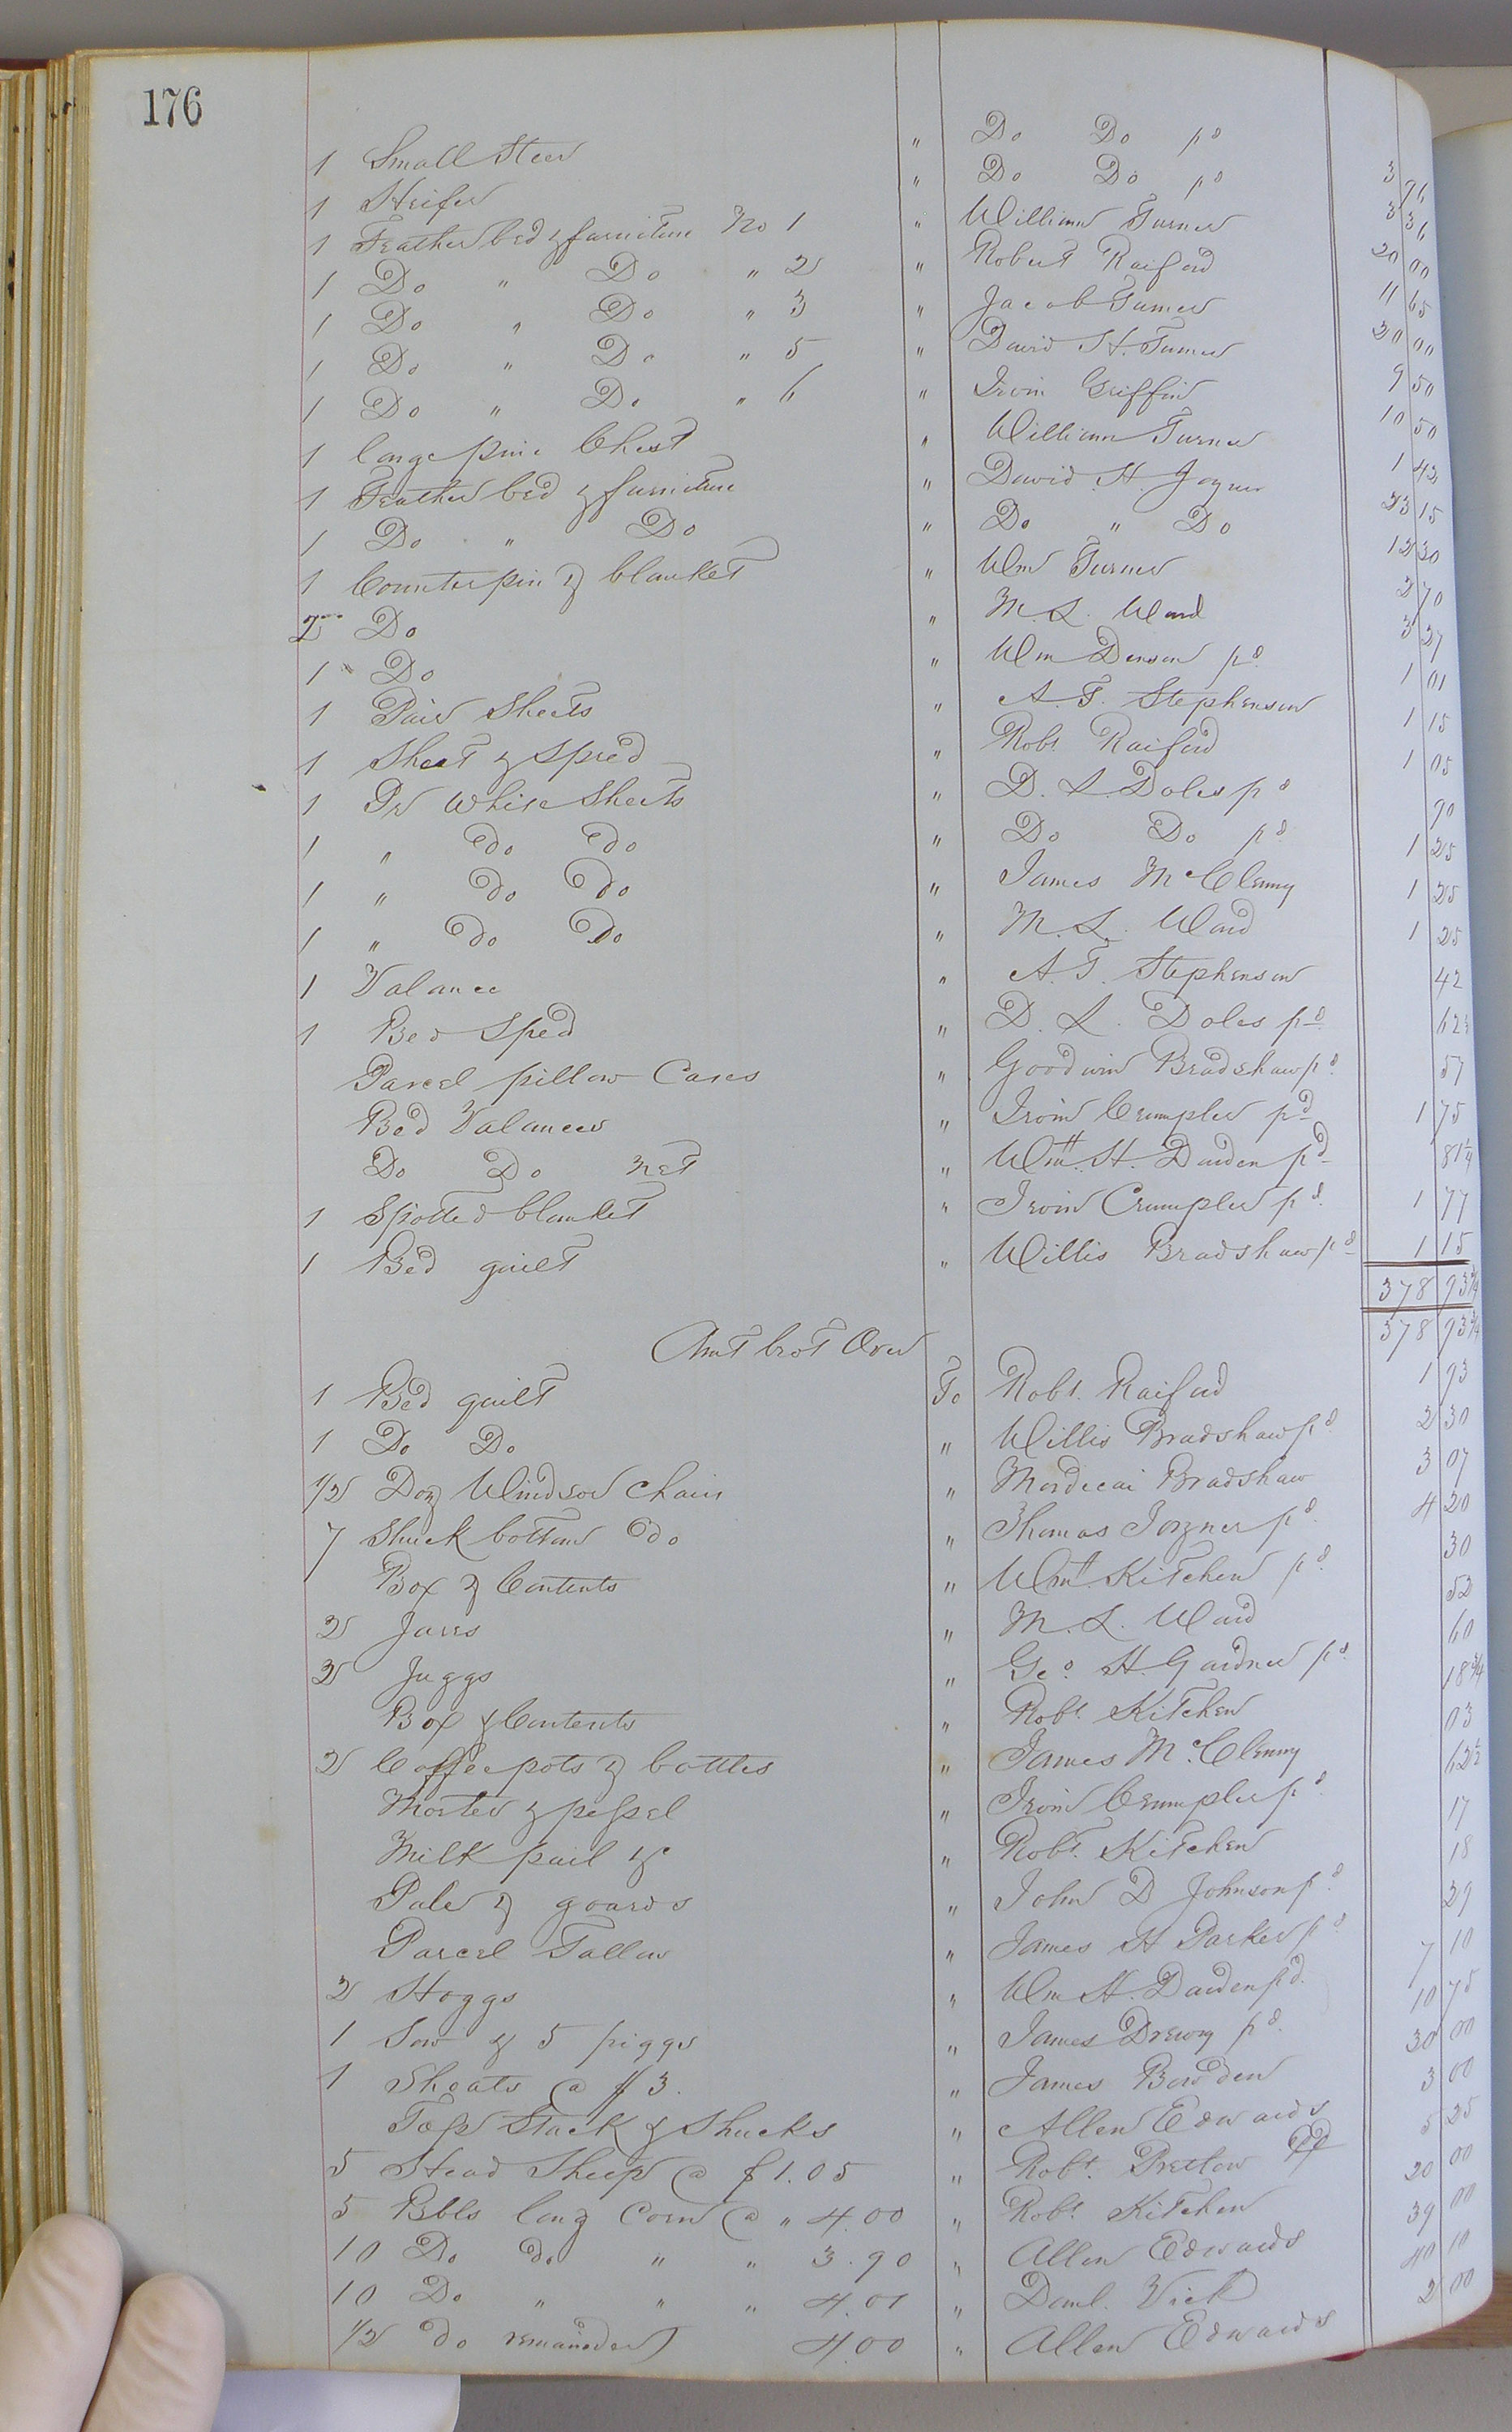 176
1 Small Steer " Do Do pd 3 96
1 Heifer " Do Do pd 3 36
1 Feather bed & furniture No 1 " William Turner 20 00
1 Do " Do " 2 " Robert Raiford 11 65
1 Do " Do " 3 " Jacob Turner 20 00
1 Do " Do " 5 " David H. Turner 9 50
1 Do " Do " 6 " Irvin Griffin 10 50
1 large pine Chest " William Turner 1 42
1 Feather bed & furniture " David H. Joyner 23 15
1 Do " Do " Do " Do 12 30
1 Counterpin & blanket " Wm Turner 2 70
2 Do " M. L. Ward 3 37
1 " Do " Wm Denson pd 1 01
1 Pair Sheets " A. T. Stephenson 1 15
1 Sheet & Spred " Robt Raiford 1 05
1 Pr White Sheets " D. L. Doles pd 90
1 " Do Do " Do Do pd 1 25
1 " Do Do " James McClenny 1 25
1 " Do Do " M. L. Ward 1 25
1 Valance " A. T. Stephenson 42
1 Bed Sped " D. L. Doles pd 62½
Parcel pillow Cases " Goodwin Bradshaw pd 57
Bed Valances " Irvin Crumpler pd 1 75
Do Do net " Wm H. Darden pd 81¼
1 Spotted blanket " Irvin Crumpler pd 1 77
1 Bed quilt " Willis Bradshaw pd 1 15
378 93¾
Amt brot Over 378 93¾
1 Bed quilt To Robt. Raiford 1 93
1 Do Do " Willis Bradshaw pd 2 30
1/2 Doz Windsor Chairs " Mordecai Bradshaw 3 07
7 Shuck bottom Do " Thomas Joyner pd 4 20
Box & Contents " Wm Kitchen pd 30
2 Jares " M. L. Ward 52
2 Juggs " Geo. H. Gardner pd 60
Box & Contents " Robt. Kitchen 18¾
2 Coffee pots & bottles " James McClenny 03
Morter & pessel " Irvin Crumpler pd 62½
Milk pail &c " Robt. Kitchen 17
Pale & goards " John D Johnson pd 18
Parcel Tallow " James H Parker pd 29
2 Hoggs " Wm H. Darden pd 7 10
1 Sow & 5 piggs " James Drewry pd 10 75
1 Shoats @ $3. " James Bowden 30 00
Top Stack & Shucks " Allen Edwards 3 00
5 Head Sheep @ $1.05 " Robt. Pretlow pd 5 25
5 Bbls long Corn @ " 4.00 " Robt. Kitchen 20 00
10 Do do " " 3.90 " Allen Edwards 39 00
10 Do " " " 4.01 " Danl. Vick 40 10
1/2 do remainder 4.00 " Allen Edwards 2 00